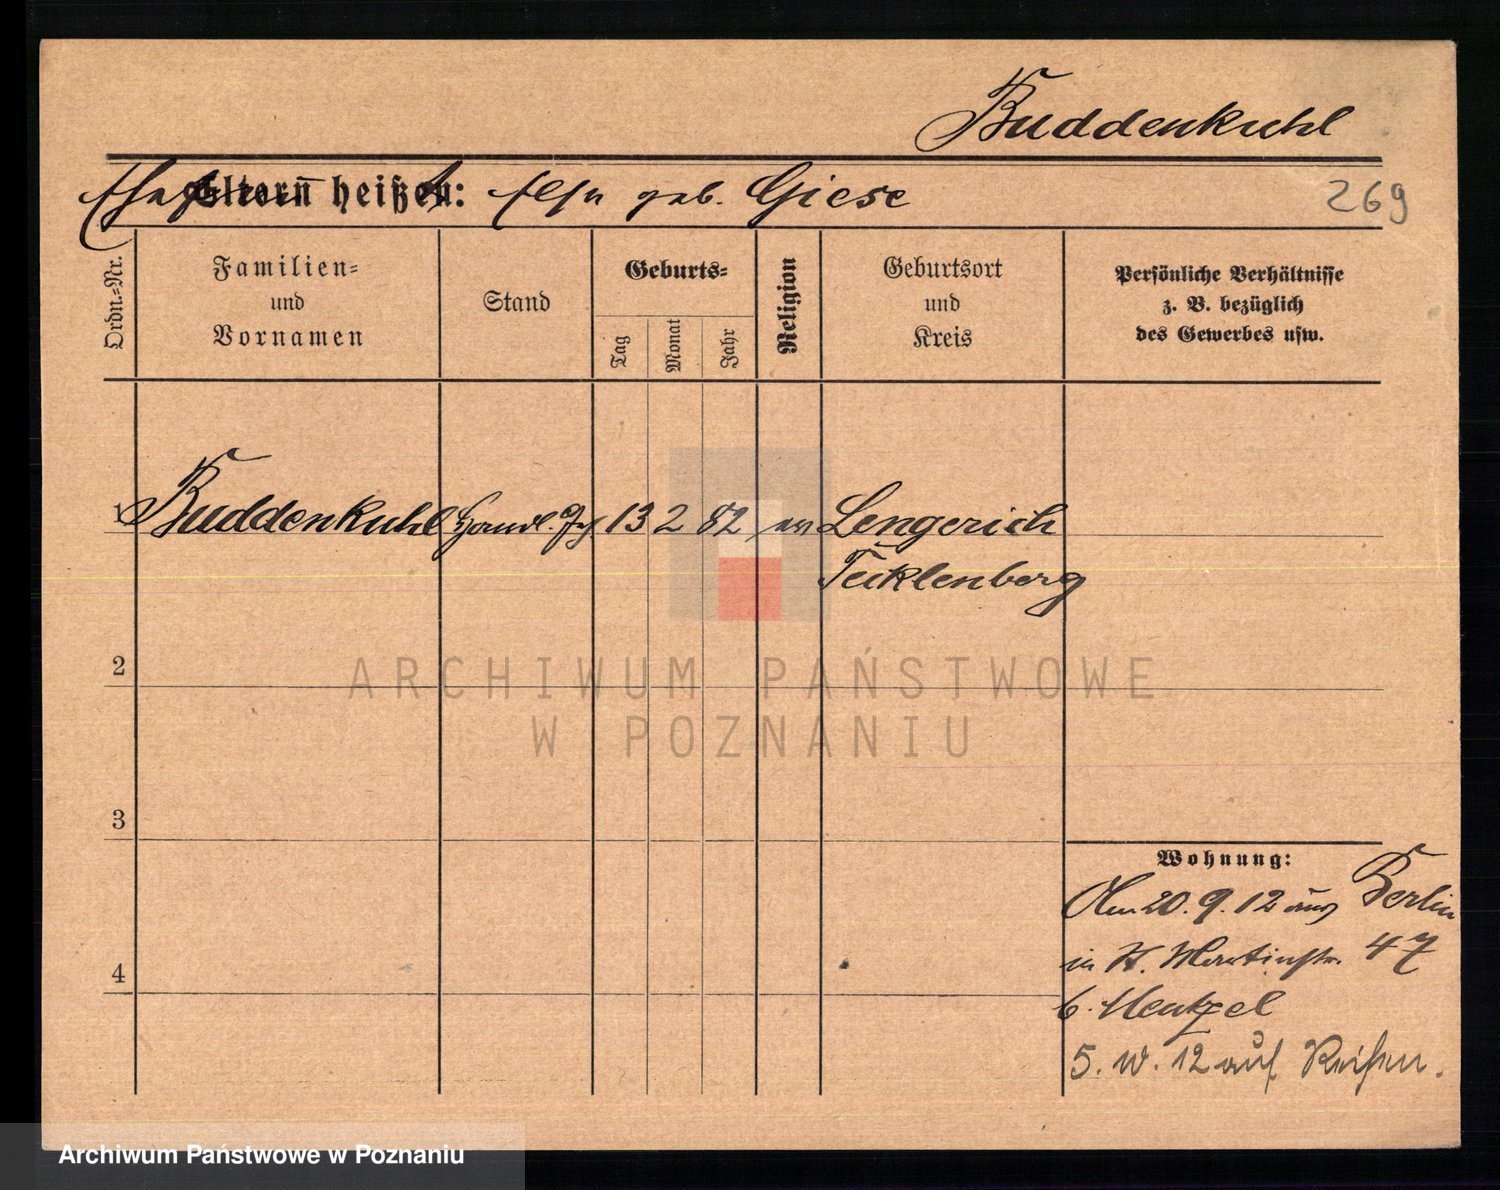 Buddenkuhl
Eltern heißen: geb. Giese
269
Ordn.=Nr.
Familien=
und
Vornamen
Stand
Geburts=
Tag
Monat
Jahr
Religion
Geburtsort
und
Kreis
Persönliche Verhältnisse
z. B. bezüglich
des Gewerbes usw.
1 Buddenkuhl Handl. 13 2 82 ev Lengerich
Tecklenberg
2
3
4
Wohnung:
Am 20. 9. 12 aus Berlin
in St. Martinstr. 47
b. Menkel
5. W. 12 auf Reisen.
ARCHIWUM PAŃSTWOWE
W POZNANIU
Archiwum Państwowe w Poznaniu